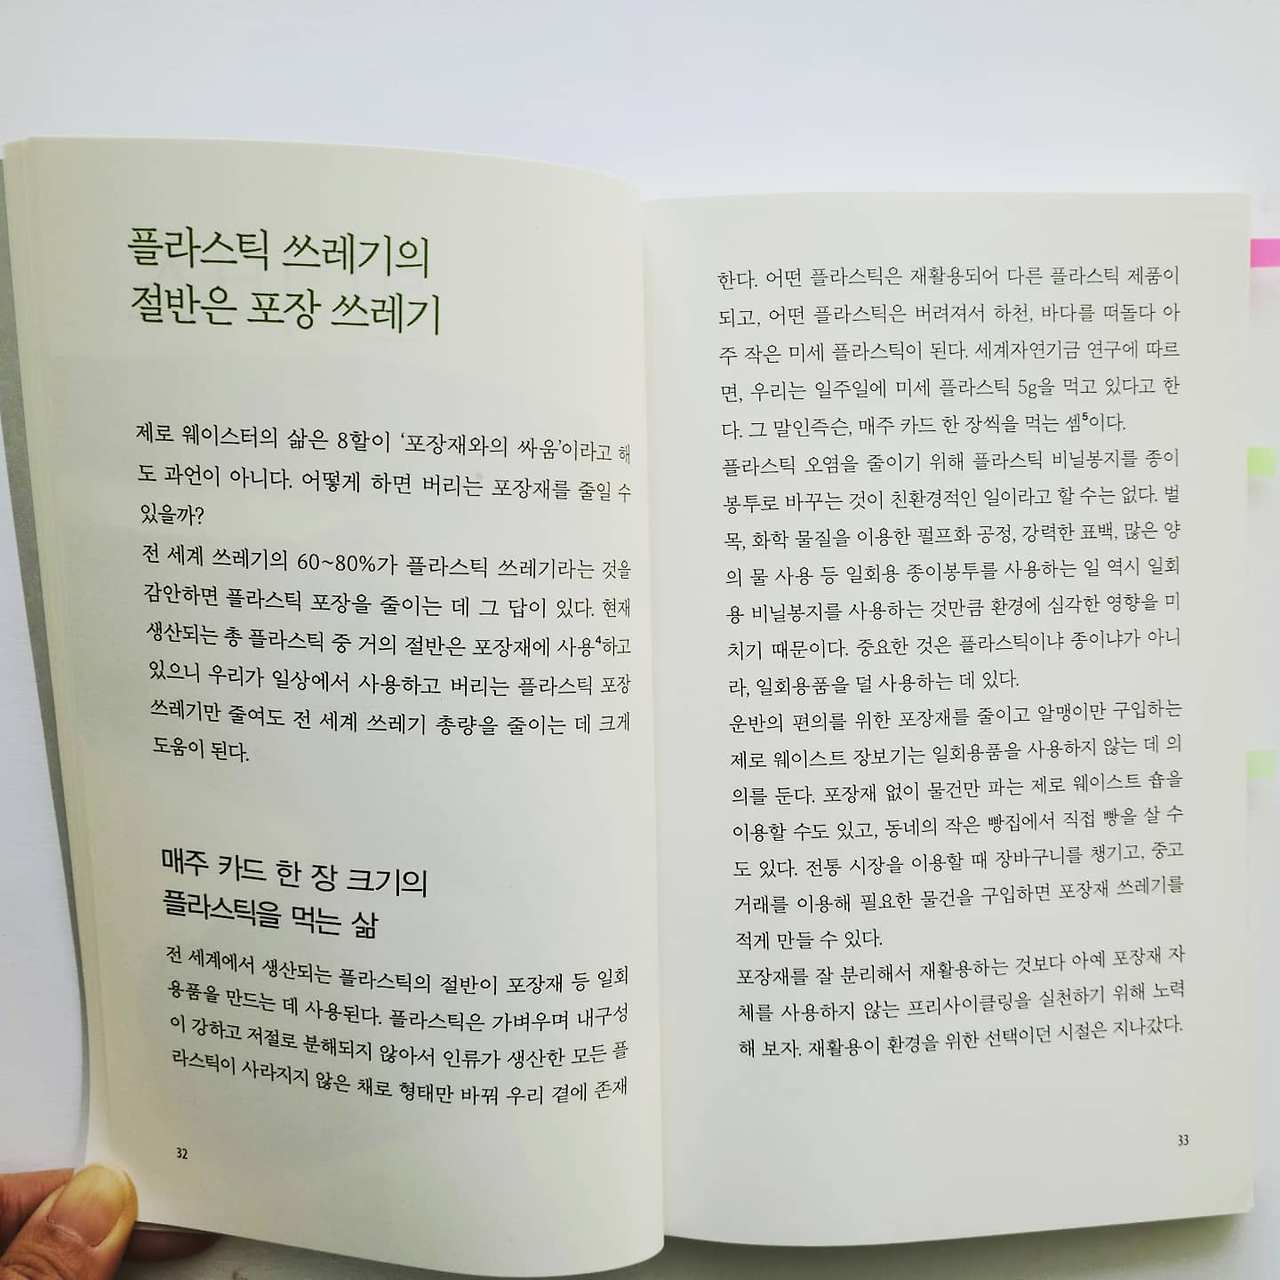 플라스틱 쓰레기의
절반은 포장 쓰레기
제로 웨이스터의 삶은 8할이 ‘포장재와의 싸움’이라고 해
도 과언이 아니다. 어떻게 하면 버리는 포장재를 줄일 수
있을까?
전 세계 쓰레기의 60~80%가 플라스틱 쓰레기라는 것을
감안하면 플라스틱 포장을 줄이는 데 그 답이 있다. 현재
생산되는 총 플라스틱 중 거의 절반은 포장재에 사용⁴하고
있으니 우리가 일상에서 사용하고 버리는 플라스틱 포장
쓰레기만 줄여도 전 세계 쓰레기 총량을 줄이는 데 크게
도움이 된다.
매주 카드 한 장 크기의
플라스틱을 먹는 삶
전 세계에서 생산되는 플라스틱의 절반이 포장재 등 일회
용품을 만드는 데 사용된다. 플라스틱은 가벼우며 내구성
이 강하고 저절로 분해되지 않아서 인류가 생산한 모든 플
라스틱이 사라지지 않은 채로 형태만 바꿔 우리 곁에 존재
32
한다. 어떤 플라스틱은 재활용되어 다른 플라스틱 제품이
되고, 어떤 플라스틱은 버려져서 하천, 바다를 떠돌다 아
주 작은 미세 플라스틱이 된다. 세계자연기금 연구에 따르
면, 우리는 일주일에 미세 플라스틱 5g을 먹고 있다고 한
다. 그 말인즉슨, 매주 카드 한 장씩을 먹는 셈⁵이다.
플라스틱 오염을 줄이기 위해 플라스틱 비닐봉지를 종이
봉투로 바꾸는 것이 친환경적인 일이라고 할 수는 없다. 벌
목, 화학 물질을 이용한 펄프화 공정, 강력한 표백, 많은 양
의 물 사용 등 일회용 종이봉투를 사용하는 일 역시 일회
용 비닐봉지를 사용하는 것만큼 환경에 심각한 영향을 미
치기 때문이다. 중요한 것은 플라스틱이냐 종이냐가 아니
라, 일회용품을 덜 사용하는 데 있다.
운반의 편의를 위한 포장재를 줄이고 알맹이만 구입하는
제로 웨이스트 장보기는 일회용품을 사용하지 않는 데 의
의를 둔다. 포장재 없이 물건만 파는 제로 웨이스트 숍을
이용할 수도 있고, 동네의 작은 빵집에서 직접 빵을 살 수
도 있다. 전통 시장을 이용할 때 장바구니를 챙기고, 중고
거래를 이용해 필요한 물건을 구입하면 포장재 쓰레기를
적게 만들 수 있다.
포장재를 잘 분리해서 재활용하는 것보다 아예 포장재 자
체를 사용하지 않는 프리사이클링을 실천하기 위해 노력
해 보자. 재활용이 환경을 위한 선택이던 시절은 지나갔다.
33